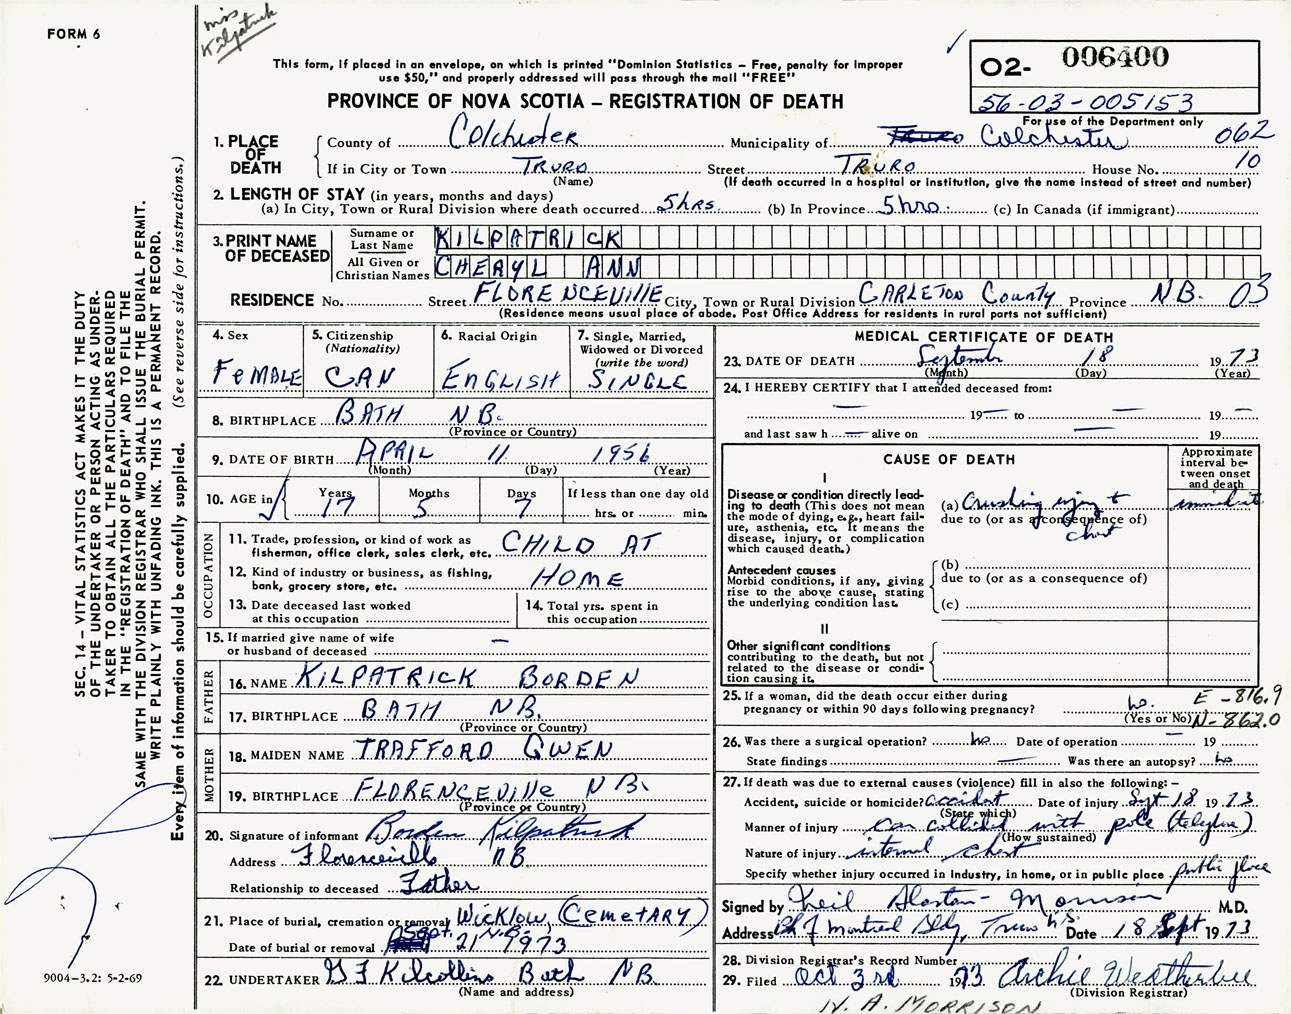 FORM 6
Miss
Kilpatrick
This form, if placed in an envelope, on which is printed "Dominion Statistics – Free, penalty for improper
use $50," and properly addressed will pass through the mail "FREE"
PROVINCE OF NOVA SCOTIA – REGISTRATION OF DEATH
O2- 006400
56-03-005153
For use of the Department only
062
10
1. PLACE OF DEATH
County of Colchester Municipality of Truro Colchester
If in City or Town TRURO Street TRURO House No.
(Name) (If death occurred in a hospital or institution, give the name instead of street and number)
2. LENGTH OF STAY (in years, months and days)
(a) In City, Town or Rural Division where death occurred 5hrs. (b) In Province 5hrs. (c) In Canada (if immigrant)
3. PRINT NAME OF DECEASED
Surname or Last Name KILPATRICK
All Given or Christian Names CHERYL ANN
RESIDENCE No. Street FLORENCEVILLE City, Town or Rural Division CARLETON COUNTY Province N.B. 03
(Residence means usual place of abode. Post Office Address for residents in rural parts not sufficient)
4. Sex
FEMALE
5. Citizenship
(Nationality)
CAN
6. Racial Origin
ENGLISH
7. Single, Married,
Widowed or Divorced
(write the word)
SINGLE
8. BIRTHPLACE BATH N.B.
(Province or Country)
9. DATE OF BIRTH APRIL 11 1956
(Month) (Day) (Year)
10. AGE in
Years Months Days If less than one day old
17 5 7 hrs. or min.
OCCUPATION
11. Trade, profession, or kind of work as
fisherman, office clerk, sales clerk, etc. CHILD AT
12. Kind of industry or business, as fishing,
bank, grocery store, etc. HOME
13. Date deceased last worked
at this occupation
14. Total yrs. spent in
this occupation
15. If married give name of wife
or husband of deceased —
FATHER
16. NAME KILPATRICK BORDEN
17. BIRTHPLACE BATH N.B.
(Province or Country)
MOTHER
18. MAIDEN NAME TRAFFORD GWEN
19. BIRTHPLACE FLORENCEVILLE N B.
(Province or Country)
20. Signature of informant Borden Kilpatrick
Address Florenceville N.B
Relationship to deceased Father
21. Place of burial, cremation or removal Wicklow, (Cemetary) N.B.
Date of burial or removal Sept. 21 1973
22. UNDERTAKER G F Kilcollins Bath N.B.
(Name and address)
MEDICAL CERTIFICATE OF DEATH
23. DATE OF DEATH September 18 1973
(Month) (Day) (Year)
24. I HEREBY CERTIFY that I attended deceased from:
— 19— to — 19—
and last saw h — alive on — 19
CAUSE OF DEATH
Approximate
interval be-
tween onset
and death
I
Disease or condition directly lead-
ing to death (This does not mean
the mode of dying, e.g., heart fail-
ure, asthenia, etc. It means the
disease, injury, or complication
which caused death.)
(a) Crushing injury to immediate
due to (or as a consequence of)
chest
Antecedent causes
Morbid conditions, if any, giving
rise to the above cause, stating
the underlying condition last.
(b)
due to (or as a consequence of)
(c)
II
Other significant conditions
contributing to the death, but not
related to the disease or condi-
tion causing it.
25. If a woman, did the death occur either during
pregnancy or within 90 days following pregnancy? no.
(Yes or No)
E - 816.9
N - 862.0
26. Was there a surgical operation? no Date of operation — 19
State findings — Was there an autopsy? no
27. If death was due to external causes (violence) fill in also the following: –
Accident, suicide or homicide? accident Date of injury Sept 18 1973
(State which)
Manner of injury car collided with pole (telephone)
(How sustained)
Nature of injury internal chest
Specify whether injury occurred in industry, in home, or in public place public place
Signed by Neil Morrison M.D.
Address Montreal Bldg, Truro N.S. Date 18 Sept 1973
28. Division Registrar's Record Number
29. Filed Oct 3rd 1973 Archie Weatherbee
(Division Registrar)
N. A. MORRISON
SEC. 14 – VITAL STATISTICS ACT MAKES IT THE DUTY
OF THE UNDERTAKER OR PERSON ACTING AS UNDER-
TAKER TO OBTAIN ALL THE PARTICULARS REQUIRED
IN THE "REGISTRATION OF DEATH" AND TO FILE THE
SAME WITH THE DIVISION REGISTRAR WHO SHALL ISSUE THE BURIAL PERMIT.
WRITE PLAINLY WITH UNFADING INK. THIS IS A PERMANENT RECORD.
Every item of information should be carefully supplied. (See reverse side for instructions.)
9004-3.2: 5-2-69